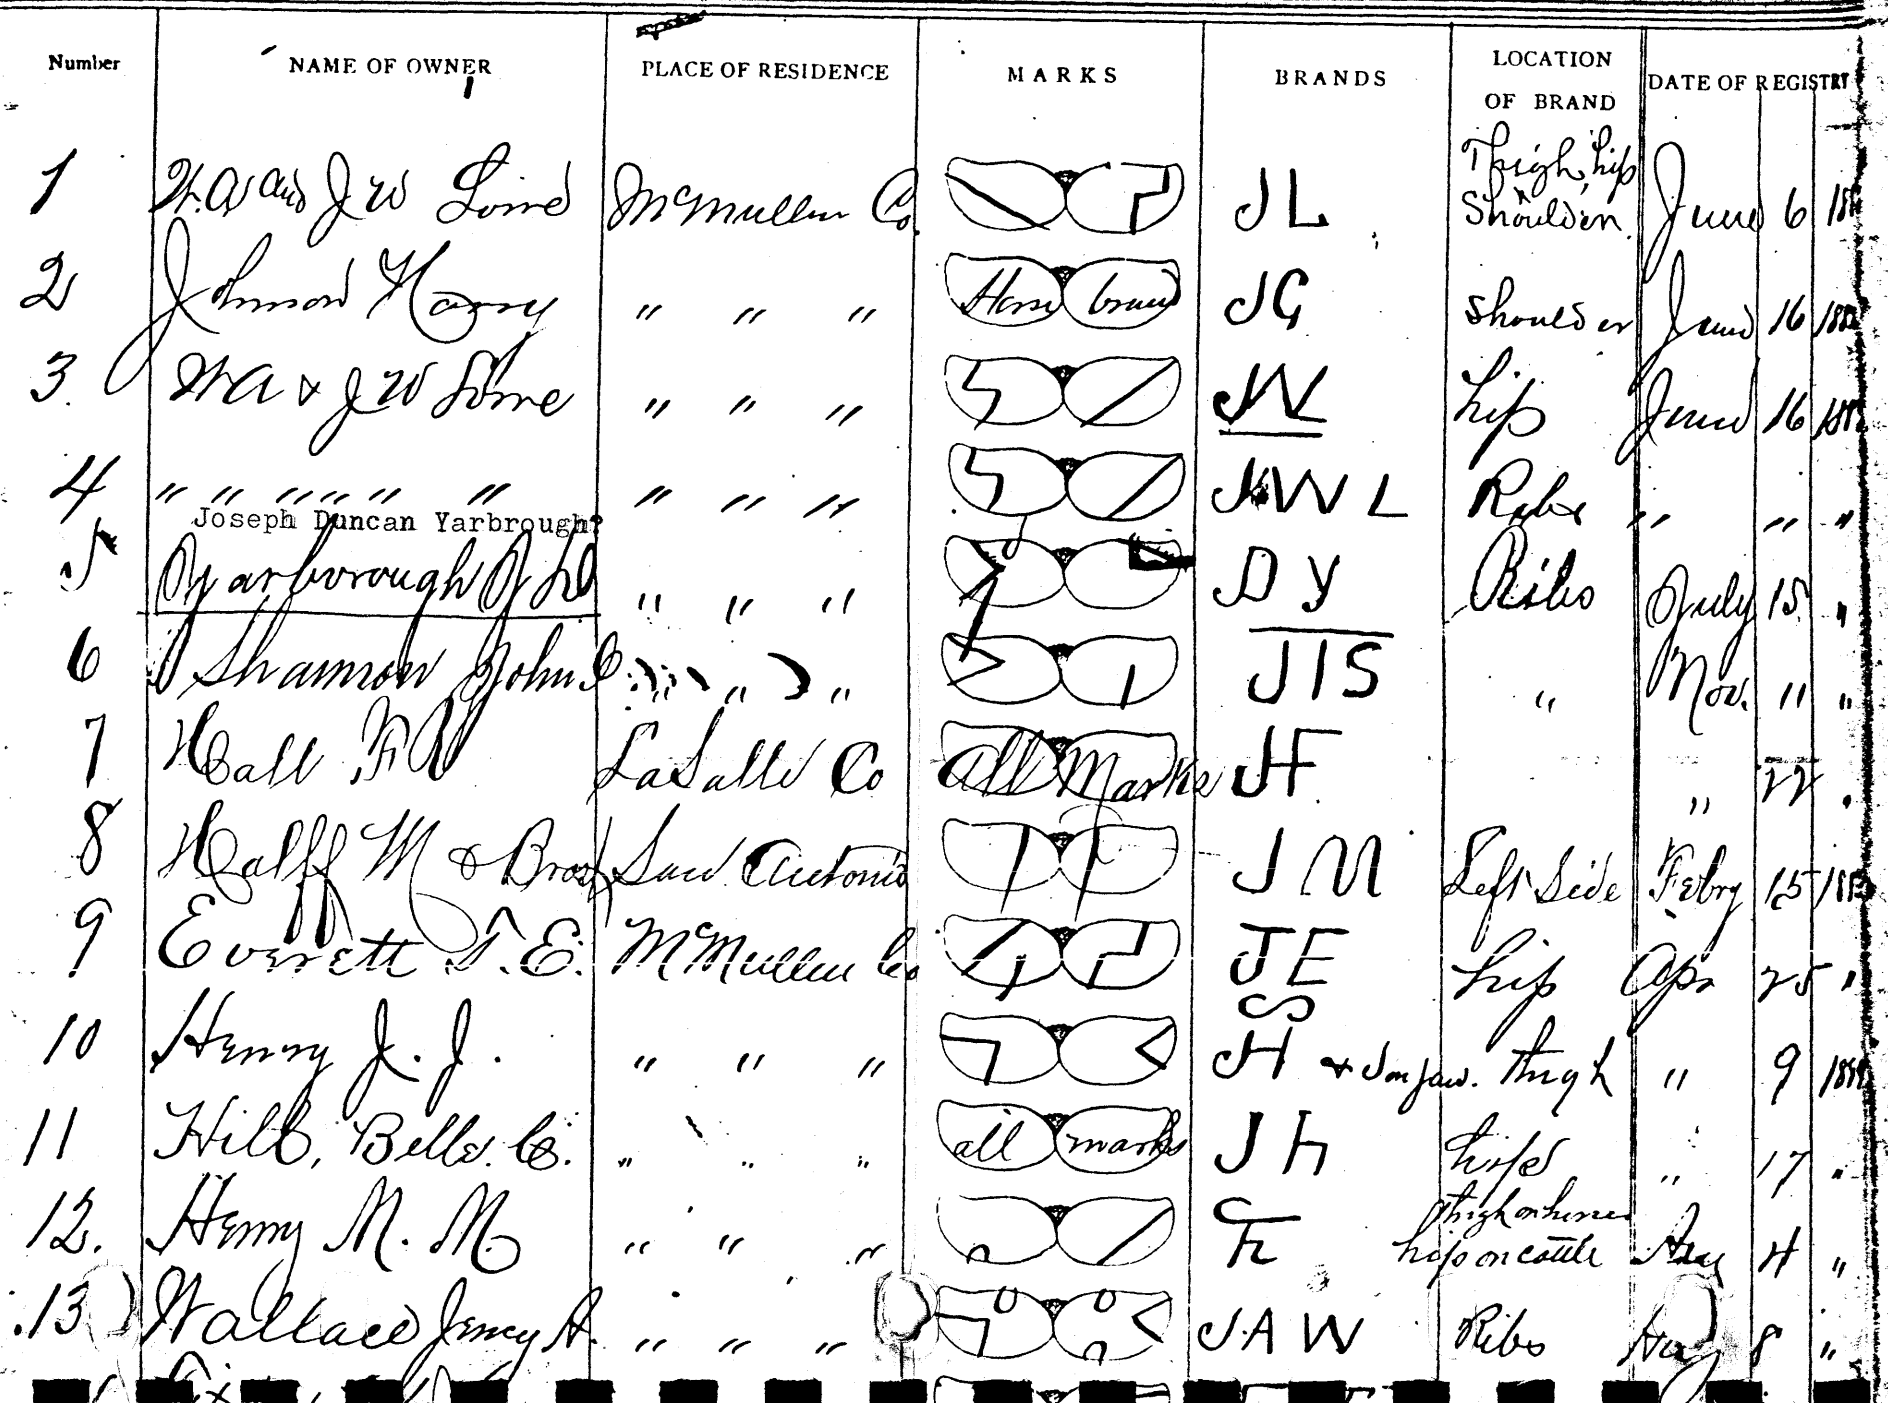 Number NAME OF OWNER PLACE OF RESIDENCE MARKS BRANDS LOCATION OF BRAND DATE OF REGISTRY
1 W.A and J W Lowe McMullen Co. JL Thigh, hip Shoulder. June 6
2 Johnson Harry " " " Horse brand JG Shoulder June 16
3. WA & J W Lowe " " " JW hip June 16
4 " " " " " " " " " JWL Ribs " " "
Joseph Duncan Yarbrough?
5 Yarborough J D " " " D y Ribs July 15 "
6 Shannon John C " " " JIS " Nov. 11 "
7 Hall F R LaSalle Co All Marks JF " 22 "
8 Halff M & Bros San Antonio J M Left Side Febry 15
9 Everett T. E. McMullen Co JE S hip Apr 25 "
10 Henry J. J. " " " JH & J on jaw. thigh " 9
11 Hill, Belle. C. " " " all marks J h hips " 17 "
12. Henry M. M. " " " h thigh on horses hip on cattle Aug 4 "
13 Wallace Jency A. " " " JAW Ribs Aug 8 "